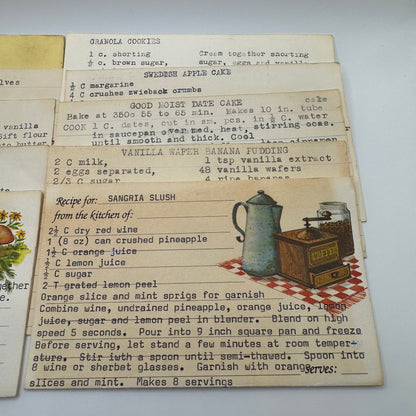 GRANOLA COOKIES
1 c. shorting Cream together shorting
½ c. brown sugar, sugar, eggs and vanilla
SWEDISH APPLE CAKE
½ C margarine
4 C crushes zwieback crumbs
GOOD MOIST DATE CAKE cake
Bake at 350o 55 to 65 min. Makes 10 in. tube
COOK 1 C. dates, cut in sm. pcs. in ½ C. water
in saucepan over med. heat, stirring ocas.
until smooth and thick. Cool
VANILLA WAFER BANANA PUDDING
2 C milk, 1 tsp vanilla extract
2 eggs separated, 48 vanilla wafers
2/3 C sugar
lves
vanilla
ift flour
gether
e.
Recipe for: SANGRIA SLUSH
from the kitchen of:
2½ C dry red wine
1 (8 oz) can crushed pineapple
1½ C orange juice
½ C lemon juice
½ C sugar
2 T grated lemon peel
Orange slice and mint sprigs for garnish
COFFEE
Combine wine, undrained pineapple, orange juice, lemon
juice, sugar and lemon peel in blender. Blend on high
speed 5 seconds. Pour into 9 inch square pan and freeze
Before serving, let stand a few minutes at room temper-
ature. Stir iwth a spoon until semi-thawed. Spoon into
8 wine or sherbet glasses. Garnish with orange serves:
slices and mint. Makes 8 servings